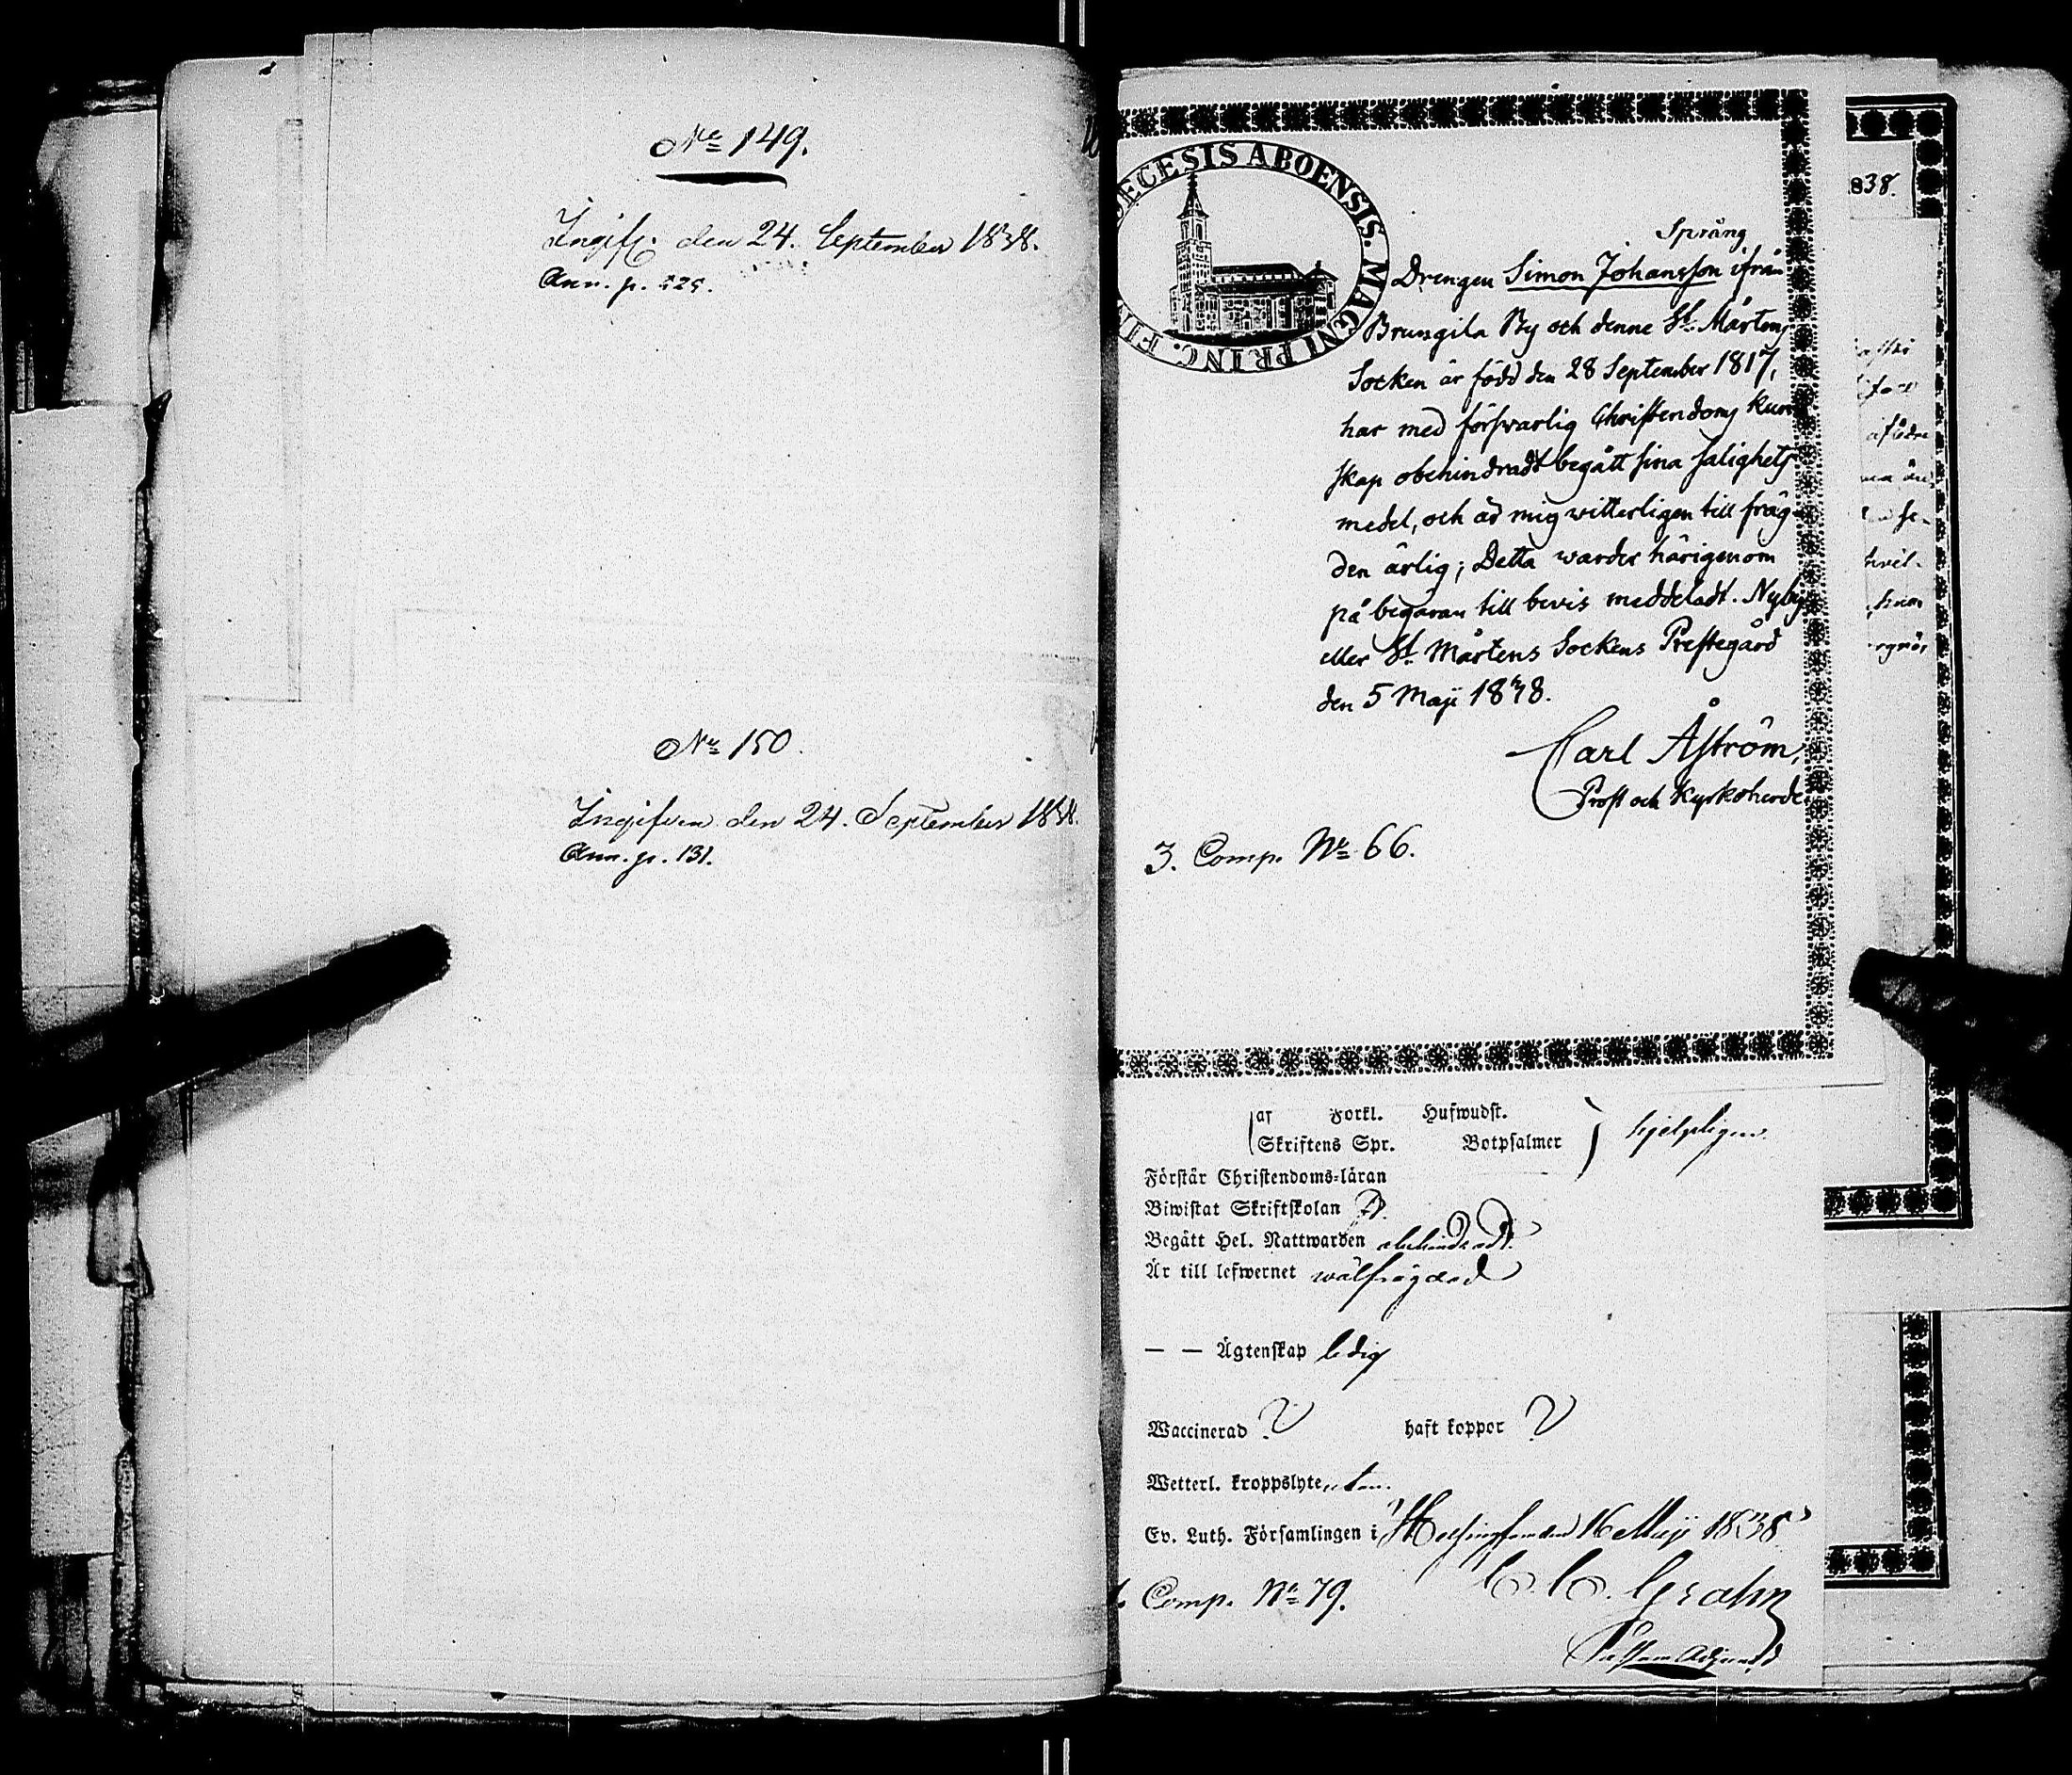 No 149.
Ingifv. den 24. September 1838.
Ann. p. 129.
No 150.
Ingifven den 24. September 1838.
Ann. p. 131.
ECESIS ABOENSIS. MAGNI PRINC. FIN
Språng
Drengen Simon Johansson ifrån
Brungila By och denne St. Mårtens
Socken är född den 28 September 1817,
har med försvarlig Christendoms kun
skap obehindradt begått sina salighets
medel, och är mig witterligen till fräg-
den ärlig; Detta warder härigenom
på begäran till bevis meddeladt. Nyby
eller St. Mårtens Sockens Prestegård
den 5 Maji 1838.
Carl Åström,
Prost och Kyrkoherde
3. Comp. No 66.
af Forkl. Hufwudst.
Skriftens Spr. Botpsalmer hjelpligen
Förstår Christendoms-läran
Biwistat Skriftskolan
Begått Hel. Nattwarden obehindradt
Är till lefwernet wälfrägdad
— — Ägtenskap ledig
Waccinerad ? haft koppor ?
Wetterl. kroppslyte utan.
Ev. Luth. Församlingen i Helsingfors den 16 Maji 1838
C. C. Grahn
Comp. No 79.
Pastors Adjunct
838.